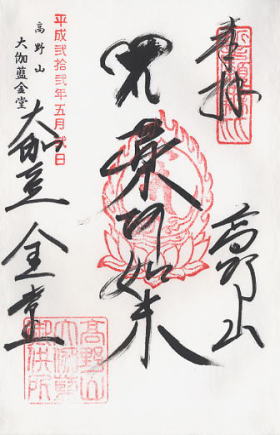 奉拝
高野山
薬師如来
大伽藍 金堂
高野山
大伽藍金堂
平成弐拾弐年五月弐日
高野山
大伽藍
御供所